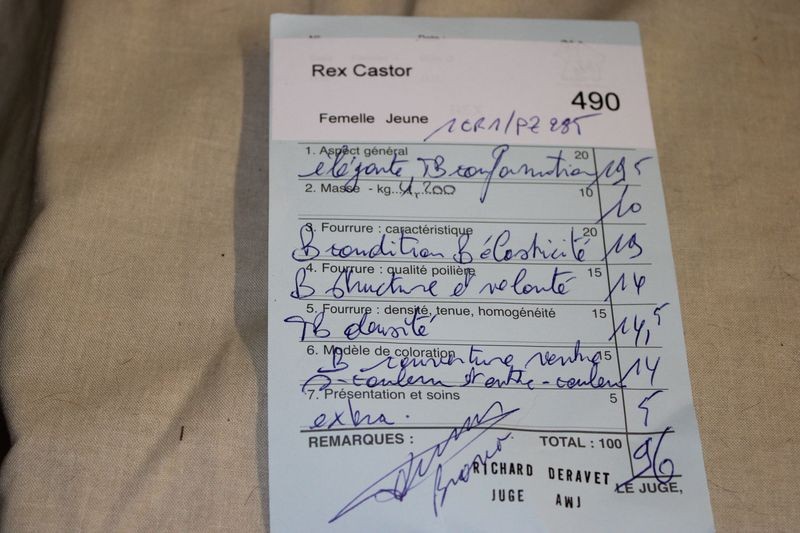 Rex Castor
490
Femelle Jeune 1CR1/PZ 285
1. Aspect général 20
élégante, TB conformation 19,5
2. Masse - kg..4,200 10
10
3. Fourrure : caractéristique 20
B condition B élasticité 19
4. Fourrure : qualité poilière 15
B structure et velouté 14
5. Fourrure : densité, tenue, homogénéité 15
TB densité 14,5
6. Modèle de coloration 15
B couverture, ventre 14
s-couleur et entre-couleur
7. Présentation et soins 5
extra. 5
REMARQUES : TOTAL : 100 96
Bravo.
RICHARD DERAVET
JUGE AWJ
LE JUGE,